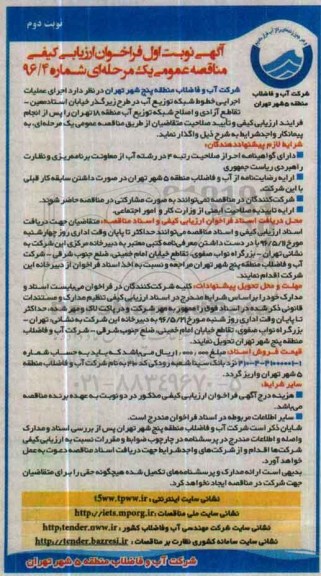 نوبت دوم
آگهی نوبت اول فراخوان ارزیابی کیفی
مناقصه عمومی یک مرحله‌ای شماره ۹۶/۴
شرکت آب و فاضلاب
منطقه ۵ شهر تهران
شرکت آب و فاضلاب منطقه پنج شهر تهران در نظر دارد اجرای عملیات
اجرایی خطوط شبکه توزیع آب در طرح زیرگذر خیابان استادمعین -
تقاطع آزادی و اصلاح شبکه توزیع آب منطقه ۱۸ تهران را پس از انجام
فرایند ارزیابی کیفی و تأیید صلاحیت متقاضیان از طریق مناقصه عمومی یک مرحله‌ای، به
پیمانکار واجد شرایط به شرح ذیل واگذار نماید.
شرایط لازم پیشنهاددهندگان:
دارای گواهینامه احراز صلاحیت رتبه ۳ در رشته آب از معاونت برنامه‌ریزی و نظارت
راهبردی ریاست جمهوری
ارایه رضایت‌نامه از آب و فاضلاب منطقه ۵ شهر تهران در صورت داشتن سابقه کار قبلی
با این شرکت.
شرکت‌کنندگان در مناقصه نمی‌توانند به صورت مشارکتی در مناقصه حاضر شوند.
ارایه تأییدیه صلاحیت ایمنی از وزارت کار و امور اجتماعی.
محل دریافت اسناد فراخوان ارزیابی کیفی و اسناد مناقصه: متقاضیان جهت دریافت
اسناد ارزیابی کیفی و اسناد مناقصه می‌توانند حداکثر تا پایان وقت اداری روز چهارشنبه
مورخ ۹۶/۵/۱۱ با در دست داشتن معرفی‌نامه کتبی معتبر به دبیرخانه مرکزی این شرکت به
نشانی تهران - بزرگراه نواب صفوی، تقاطع خیابان امام خمینی، ضلع جنوب شرقی - شرکت
آب و فاضلاب منطقه پنج شهر تهران مراجعه و نسبت به اخذ اسناد فراخوان از دبیرخانه این
شرکت اقدام نمایند.
مهلت و محل تحویل پیشنهادات: کلیه شرکت‌کنندگان در فراخوان می‌بایست اسناد و
مدارک خود را بر اساس شرایط مندرج در اسناد ارزیابی کیفی تنظیم مدارک و مستندات
قانونی ذکر شده در اسناد فوق را ممهور به مهر شرکت و در پاکت لاک و مهر شده، حداکثر
تا پایان وقت اداری روز شنبه مورخ به دبیرخانه این شرکت به نشانی: تهران -
بزرگراه نواب صفوی، تقاطع خیابان امام خمینی، ضلع جنوب شرقی - شرکت آب و فاضلاب
منطقه پنج شهر تهران تحویل نمایند.
قیمت فروش اسناد: مبلغ ریال می‌باشد که باید به حساب شماره
نزد بانک سینا شعبه رودکی کد به نام شرکت آب و فاضلاب منطقه
۵ شهر تهران واریز گردد.
سایر شرایط:
هزینه درج آگهی فراخوان ارزیابی کیفی مذکور در دو نوبت به عهده برنده مناقصه
می‌باشد.
سایر اطلاعات مربوطه در اسناد فراخوان مندرج است.
شایان ذکر است شرکت آب و فاضلاب منطقه پنج شهر تهران پس از بررسی اسناد و مدارک
واصله و اطلاعات مندرج در پرسشنامه در چارچوب ضوابط و مقررات نسبت به ارزیابی کیفی
شرکت‌ها اقدام و از شرکت‌های واجد شرایط جهت دریافت اسناد مناقصه دعوت به عمل
خواهد آورد.
بدیهی است ارائه مدارک و پرسشنامه‌های تکمیل شده هیچگونه حقی را برای متقاضیان
جهت شرکت در مناقصه ایجاد نخواهد کرد.
نشانی سایت اینترنتی: t5ww.tpww.ir
نشانی سایت ملی مناقصات: http://iets.mporg.ir
نشانی سایت شرکت مهندسی آب وفاضلاب کشور: http:tender.nww.ir
نشانی سایت سامانه کشوری نظارت بر مناقصات: http://tender.bazresi.ir
شرکت آب و فاضلاب منطقه ۵ شهر تهران